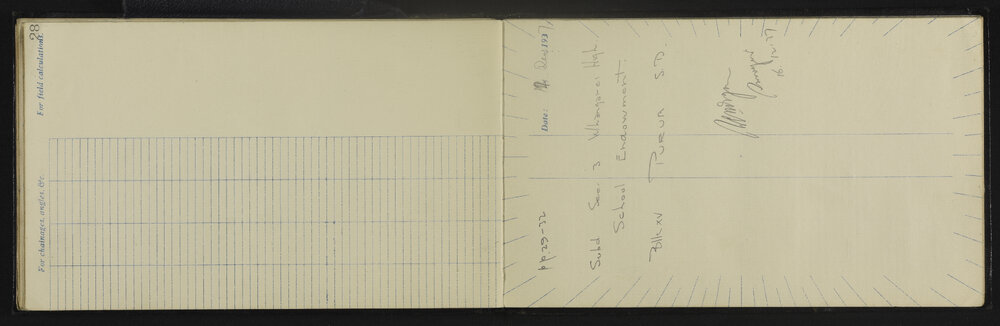 28
For field calculations.
For chainages, angles, &c.
Date: 16 Dec 1937
pp. 29-32
Subd Sec 3 Whangarei High
School Endowment.
Blk XV PURUA S.D.
Surveyor
16.12.37